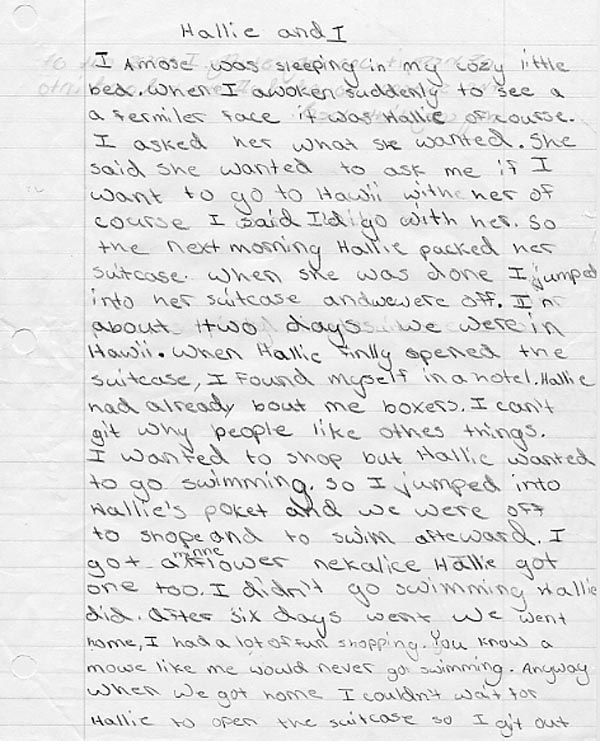 Hallie and I
I Amose was sleeping in my cozy little
bed. When I awoken suddenly to see a
a fermiler face it was Hallie of course.
I asked her what she wanted. She
said she wanted to ask me if I
want to go to Hawii with her of
course I said I'd go with her. So
the next morning Hallie packed her
suitcase. When she was done I jumped
into her suitcase andwewere off. In
about two days we were in
Hawii. When Hallie finlly opened the
suitcase, I found myself in a hotel. Hallie
had already bout me boxers. I can't
git why people like othes things.
I wanted to shop but Hallie wanted
to go swimming. So I jumped into
Hallie's poket and we were off
to shope and to swim afteward. I
got a minne flower nekalice Hallie got
one too. I didn't go swimming Hallie
did. After six days went we went
home, I had a lot of fun shopping. You know a
mowe like me would never go swimming. Anyway
when we got home I couldn't wait for
Hallie to open the suitcase so I git out